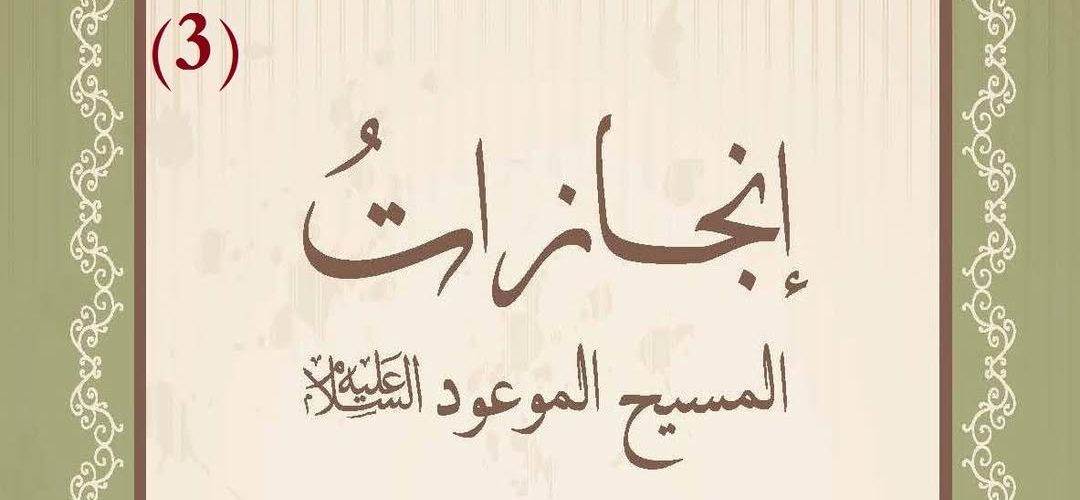 (3)
إنجازاتُ
المسيح الموعود عَلَيْهِ السَّلَام